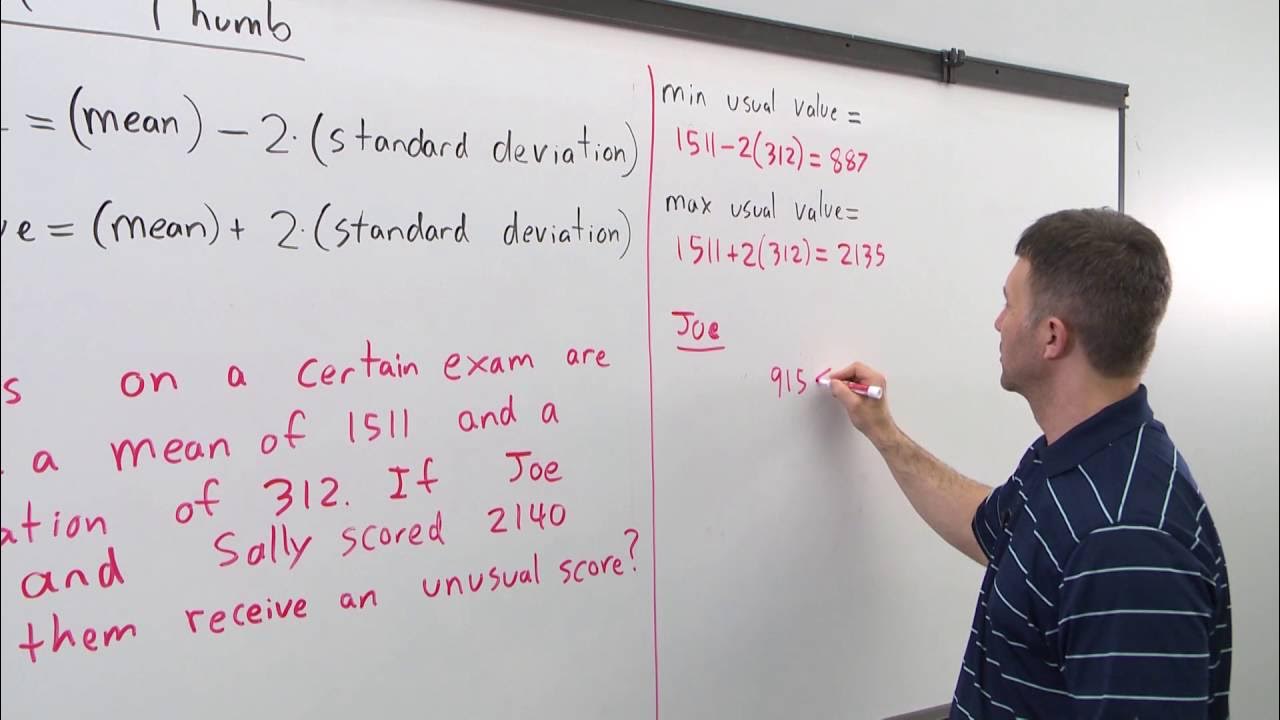 Thumb
= (mean) - 2·(standard deviation)
ve = (mean) + 2·(standard deviation)
s on a certain exam are
a mean of 1511 and a
ation of 312. If Joe
and Sally scored 2140
them receive an unusual score?
min usual value =
1511-2(312) = 887
max usual value =
1511+2(312) = 2135
Joe
915 <